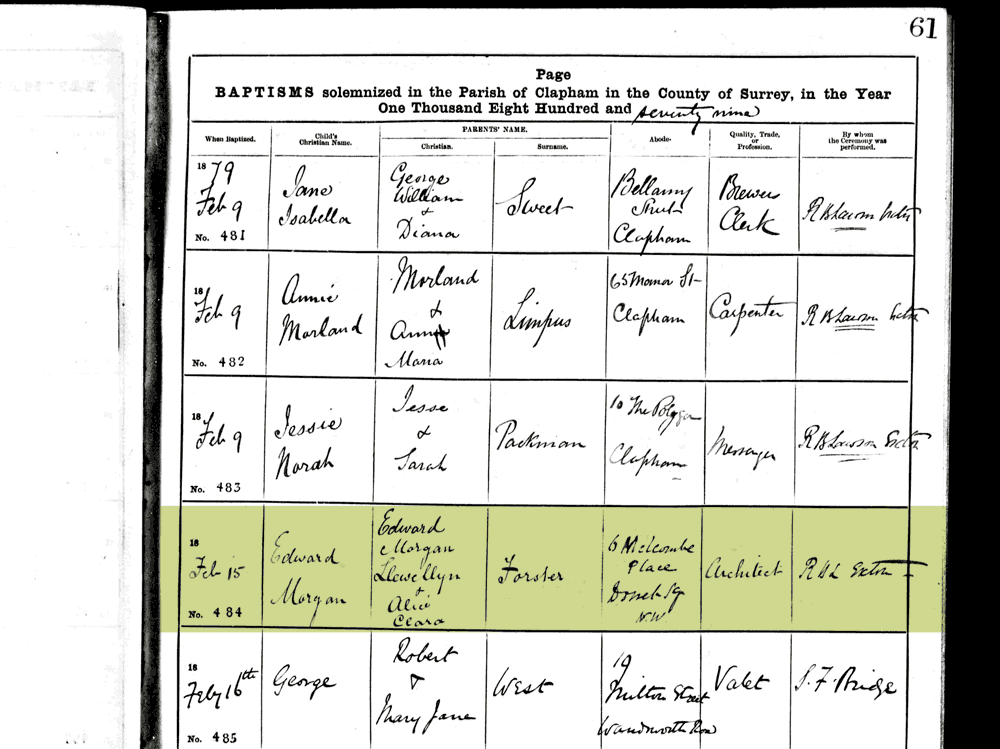 61
Page
BAPTISMS solemnized in the Parish of Clapham in the County of Surrey, in the Year
One Thousand Eight Hundred and seventy nine
When Baptized. Child's Christian Name. PARENTS' NAME. Christian. Surname. Abode. Quality, Trade, or Profession. By whom the Ceremony was performed.
1879
Feb 9
No. 481
Jane
Isabella
George
William
&
Diana
Sweet
Bellamy
Street
Clapham
Brewers
Clerk
R B Lawson
18
Feb 9
No. 482
Annie
Morland
Morland
&
Maria
Limpus
65 Manor St
Clapham
Carpenter
R B Lawson
18
Feb 9
No. 483
Jessie
Norah
Jesse
&
Sarah
Packman
10 The Polygon
Clapham
Messenger
R B Lawson
18
Feb 15
No. 484
Edward
Morgan
Edward
Morgan
Llewellyn
&
Alice
Clara
Forster
6 Melcombe
Place
Dorset Sq
N.W
Architect
R B L
18
Feby 16th
No. 485
George
Robert
&
Mary Jane
West
19
Milton Street
Wandsworth Road
Valet
S. F. Bridge